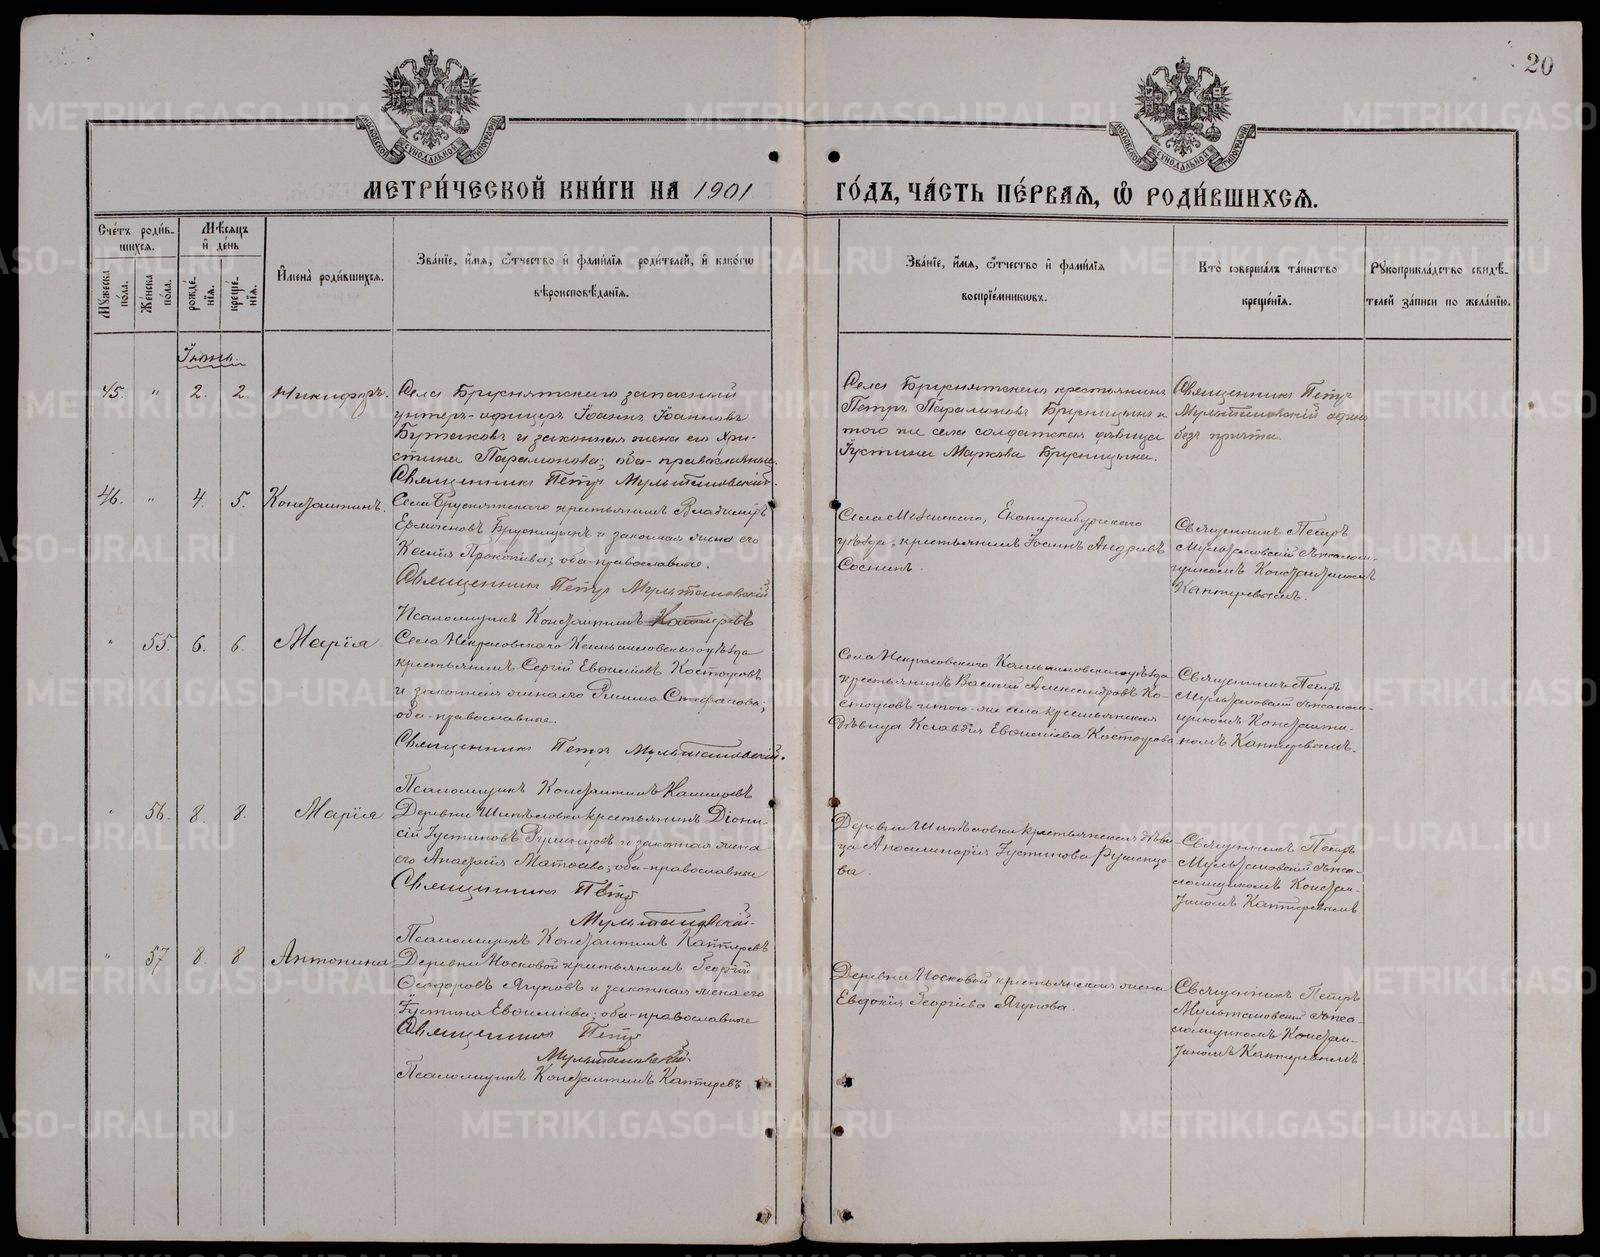 20
МЕТРИ́ЧЕСКОЙ КНИ́ГИ НА 1901 ГО́ДЪ, ЧА́СТЬ ПЕ́РВАЯ, Ѡ РОДИ́ВШИХСЯ.
Сче́тъ роди́в-
шихся.
Му́жеска по́ла.
Же́нска по́ла.
Мѣ́сяцъ и де́нь
рожде́-
нїя.
креще́-
нїя.
Имена̀ роди́вшихся.
Зва́нїе, и́мя, ѻ́тчество и фамилїя роди́телей, и како́гѡ
вѣроисповѣ́данїя.
Зва́нїе, и́мя, ѻ́тчество и фами́лїя
воспрїе́мникѡвъ.
Кто̀ соверша́лъ та́инство
креще́нїя.
Рукоприкла́дство свидѣ́-
телей за́писи по жела́нїю.
Іюнь.
45. " 2. 2. Никифоръ.
Села Бруснятскаго запасный
унтеръ-офицеръ Іоаннъ Іоанновъ
Бутаковъ и законная жена его Хри-
стина Парамонова; оба-православные.
Священникъ Петръ Мультановскій.
Села Бруснятскаго крестьянинъ
Петръ Парамоновъ Брусницынъ и
того же села солдатская дѣвица
Іустина Маркова Брусницына.
Священникъ Петръ
Мультановскій одинъ
безъ причта.
46. " 4. 5. Константинъ.
Села Бруснятскаго крестьянинъ Владиміръ
Брусницынъ и законная жена его
Ксенія Прокопіева; оба-православные.
Священникъ Петръ Мультановскій
Псаломщикъ Константинъ Каптеревъ
Села Екатеринбургскаго
уѣзда, крестьянинъ Іоаннъ Андреевъ
Соснинъ.
Священникъ Петръ
Мультановскій съ псалом-
щикомъ Константиномъ
Каптеревымъ.
" 55. 6. 6. Марія
Села Некрасовскаго Камышловскаго уѣзда
крестьянинъ Сергій Евѳиміевъ Костоусовъ
и законная жена его Стефанова;
оба-православные.
Священникъ Петръ Мультановскій.
Псаломщикъ Константинъ Каптеревъ
Села Некрасовскаго Камышловскаго уѣзда
крестьянинъ Василій Александровъ Ко-
стоусовъ и того-же села крестьянская
дѣвица Клавдія Евѳиміева Костоусова
Священникъ Петръ
Мультановскій съ псалом-
щикомъ Константи-
номъ Каптеревымъ.
" 56. 8. 8. Марія
Деревни Шипѣловки крестьянинъ Діони-
сій Іустиновъ Румянцовъ и законная жена
его Анастасія Матѳіева; оба-православные
Священникъ Петръ
Мультановскій.
Псаломщикъ Константинъ Каптеревъ
Деревни Шипѣловки крестьянская дѣви-
ца Аполлинарія Іустинова Румянцо-
ва.
Священникъ Петръ
Мультановскій съ пса-
ломщикомъ Констан-
тиномъ Каптеревымъ
" 57 8. 8 Антонина
Деревни Носковой крестьянинъ Георгій
Ѳеодоровъ Ягуновъ и законная жена его
Іустина Евѳиміева; оба-православные
Священникъ Петръ
Мультановскій.
Псаломщикъ Константинъ Каптеревъ
Деревни Носковой крестьянская жена
Евдокія Георгіева Ягунова.
Священникъ Петръ
Мультановскій съ пса-
ломщикомъ Констан-
тиномъ Каптеревымъ
METRIKI.GASO-URAL.RU